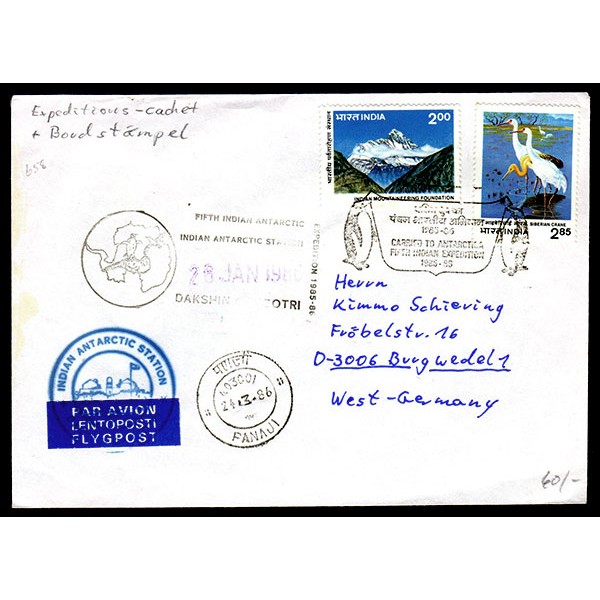 Expeditions-cachet
+ Bordstämpel
b58
भारत INDIA 2.00
भारतीय पर्वतारोहण संस्थान
INDIAN MOUNTAINEERING FOUNDATION
SIBERIAN CRANE
भारत INDIA 2.85
पंचम भारतीय अभियान
1985-86
CARRIED TO ANTARCTICA
FIFTH INDIAN EXPEDITION
1985-86
FIFTH INDIAN ANTARCTIC
EXPEDITION 1985-86
INDIAN ANTARCTIC STATION
28 JAN 1986
DAKSHIN GANGOTRI
Herrn
Kimmo Schiering
Fröbelstr. 16
D-3006 Burgwedel 1
West-Germany
INDIAN ANTARCTIC STATION
PAR AVION
LENTOPOSTI
FLYGPOST
पणजी
403001
24 86
PANAJI
60/-